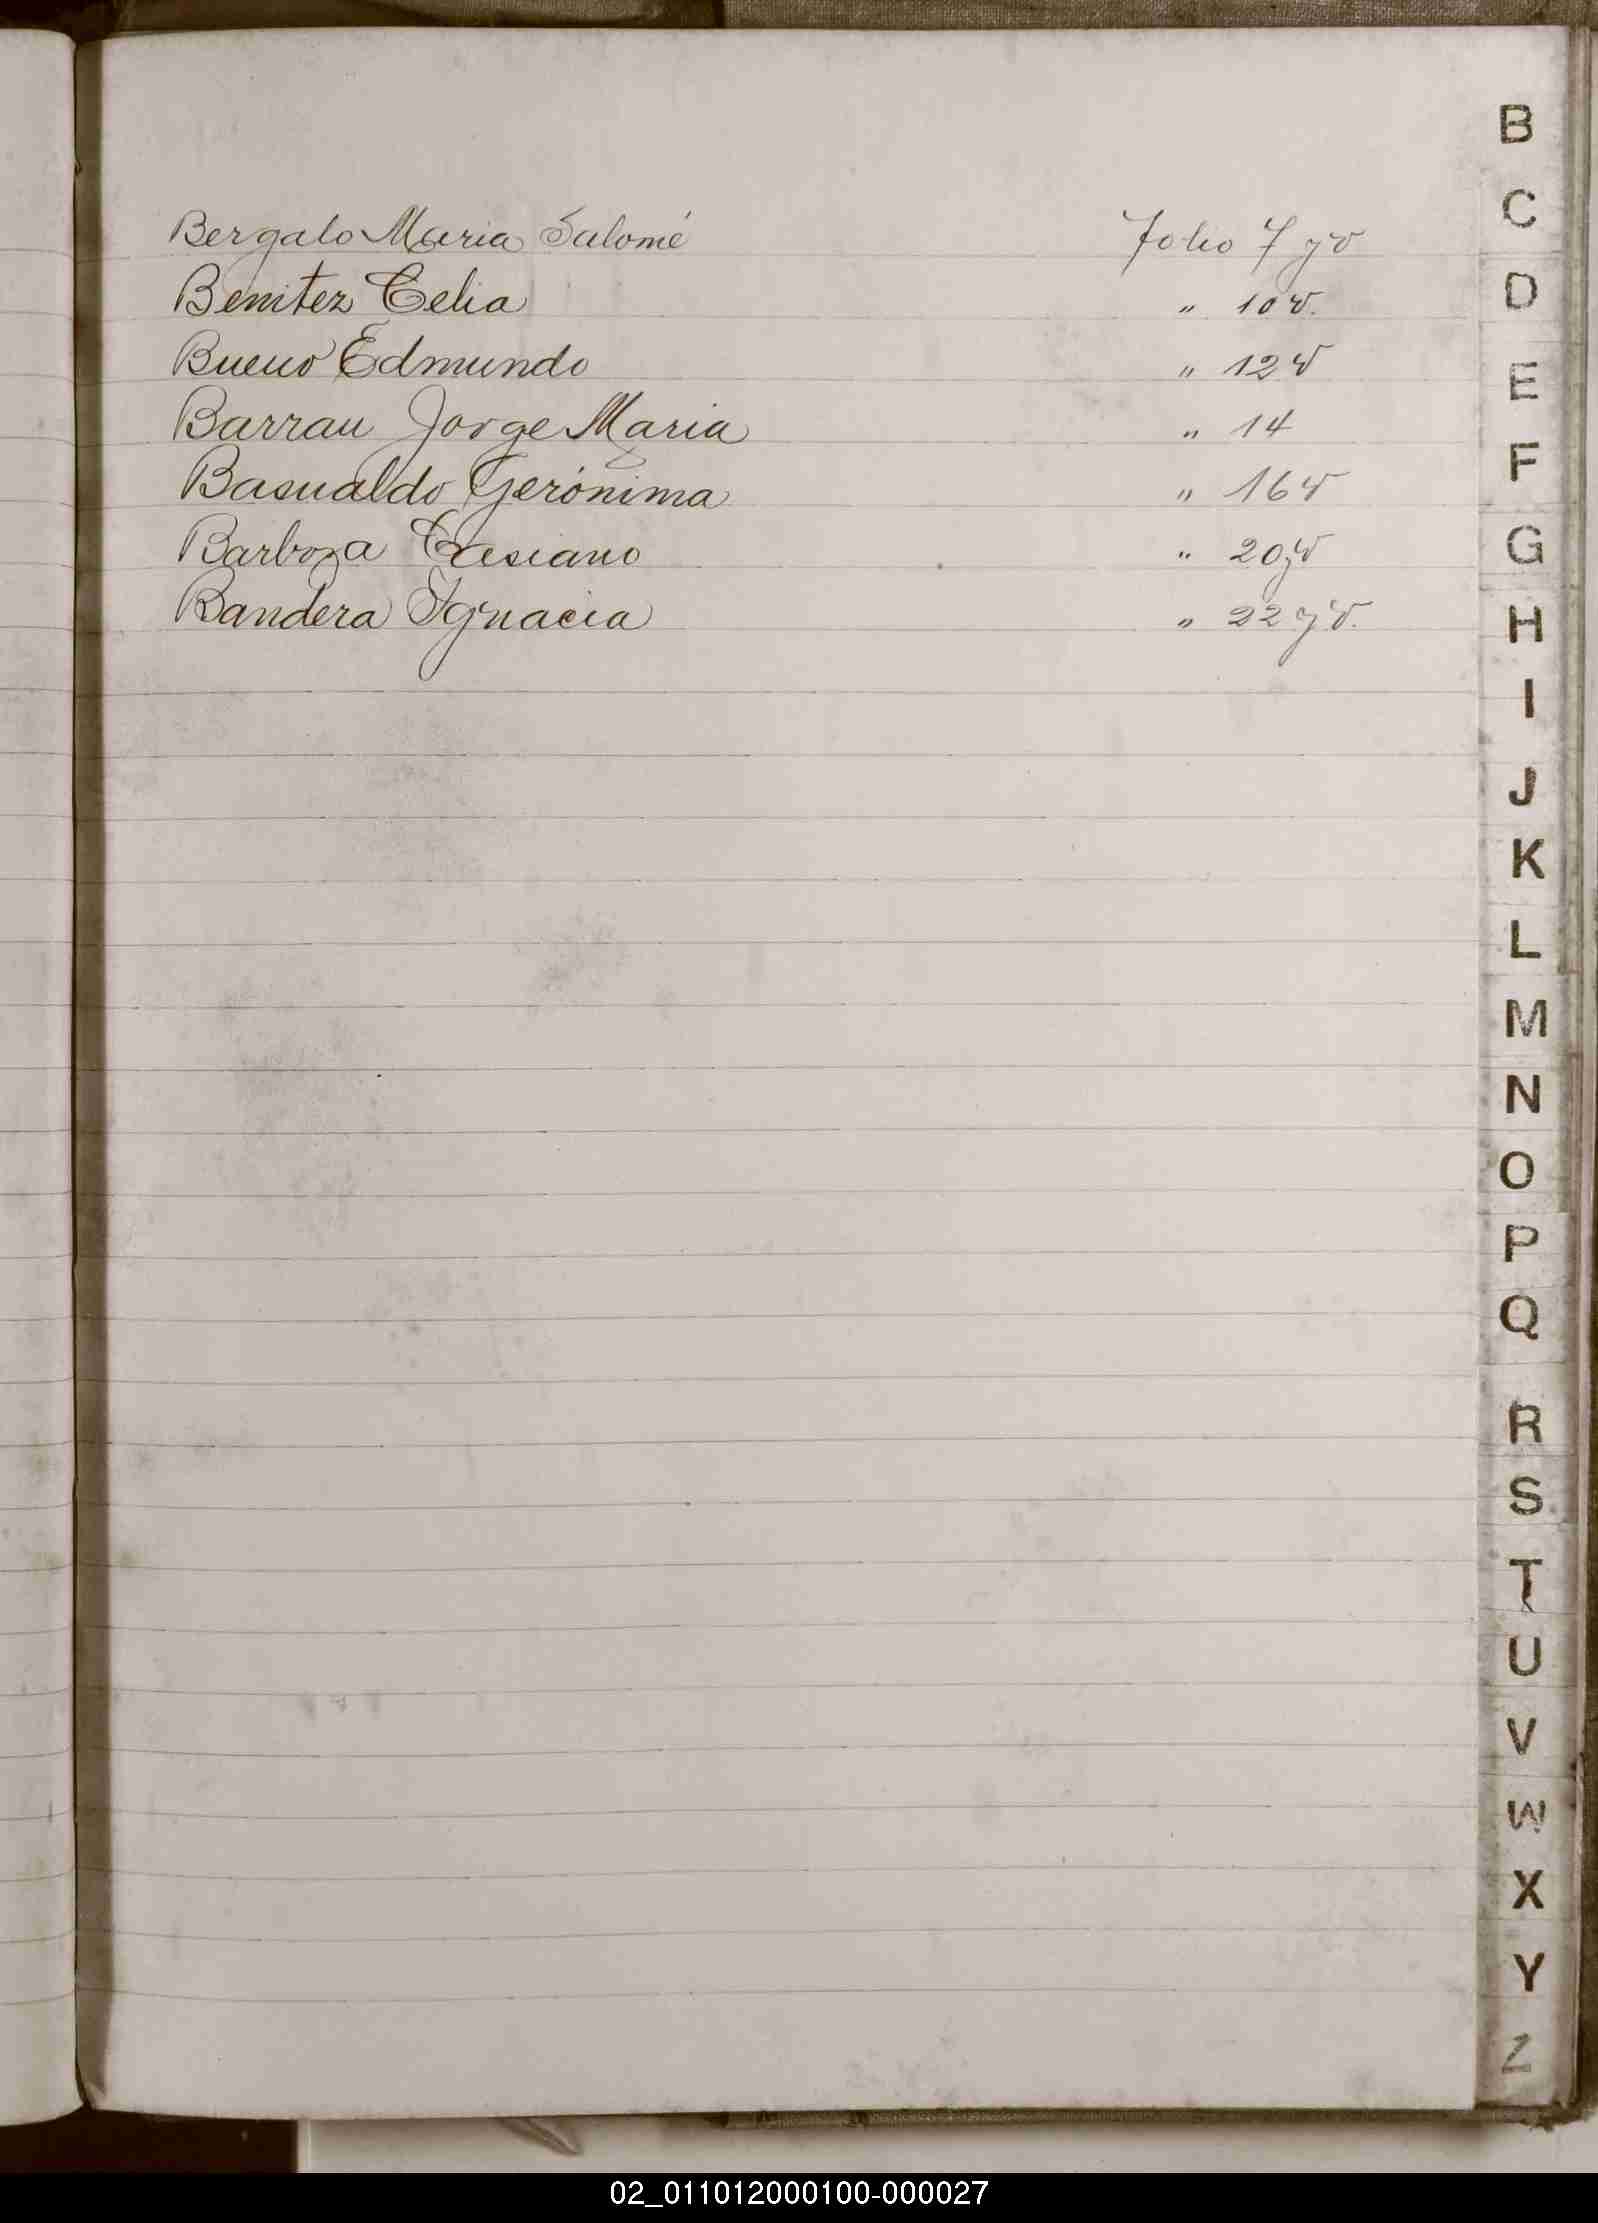 Bergalo Maria Salomé Folio 7 y v
Benitez Celia " 10 v.
Bueno Edmundo " 12 v
Barrau Jorge Maria " 14
Basualdo Gerónima " 16 v
Barboza Casiano " 20 y v
Bandera Ignacia " 22 y v.
B
C
D
E
F
G
H
I
J
K
L
M
N
O
P
Q
R
S
T
U
V
W
X
Y
Z
02_011012000100-000027